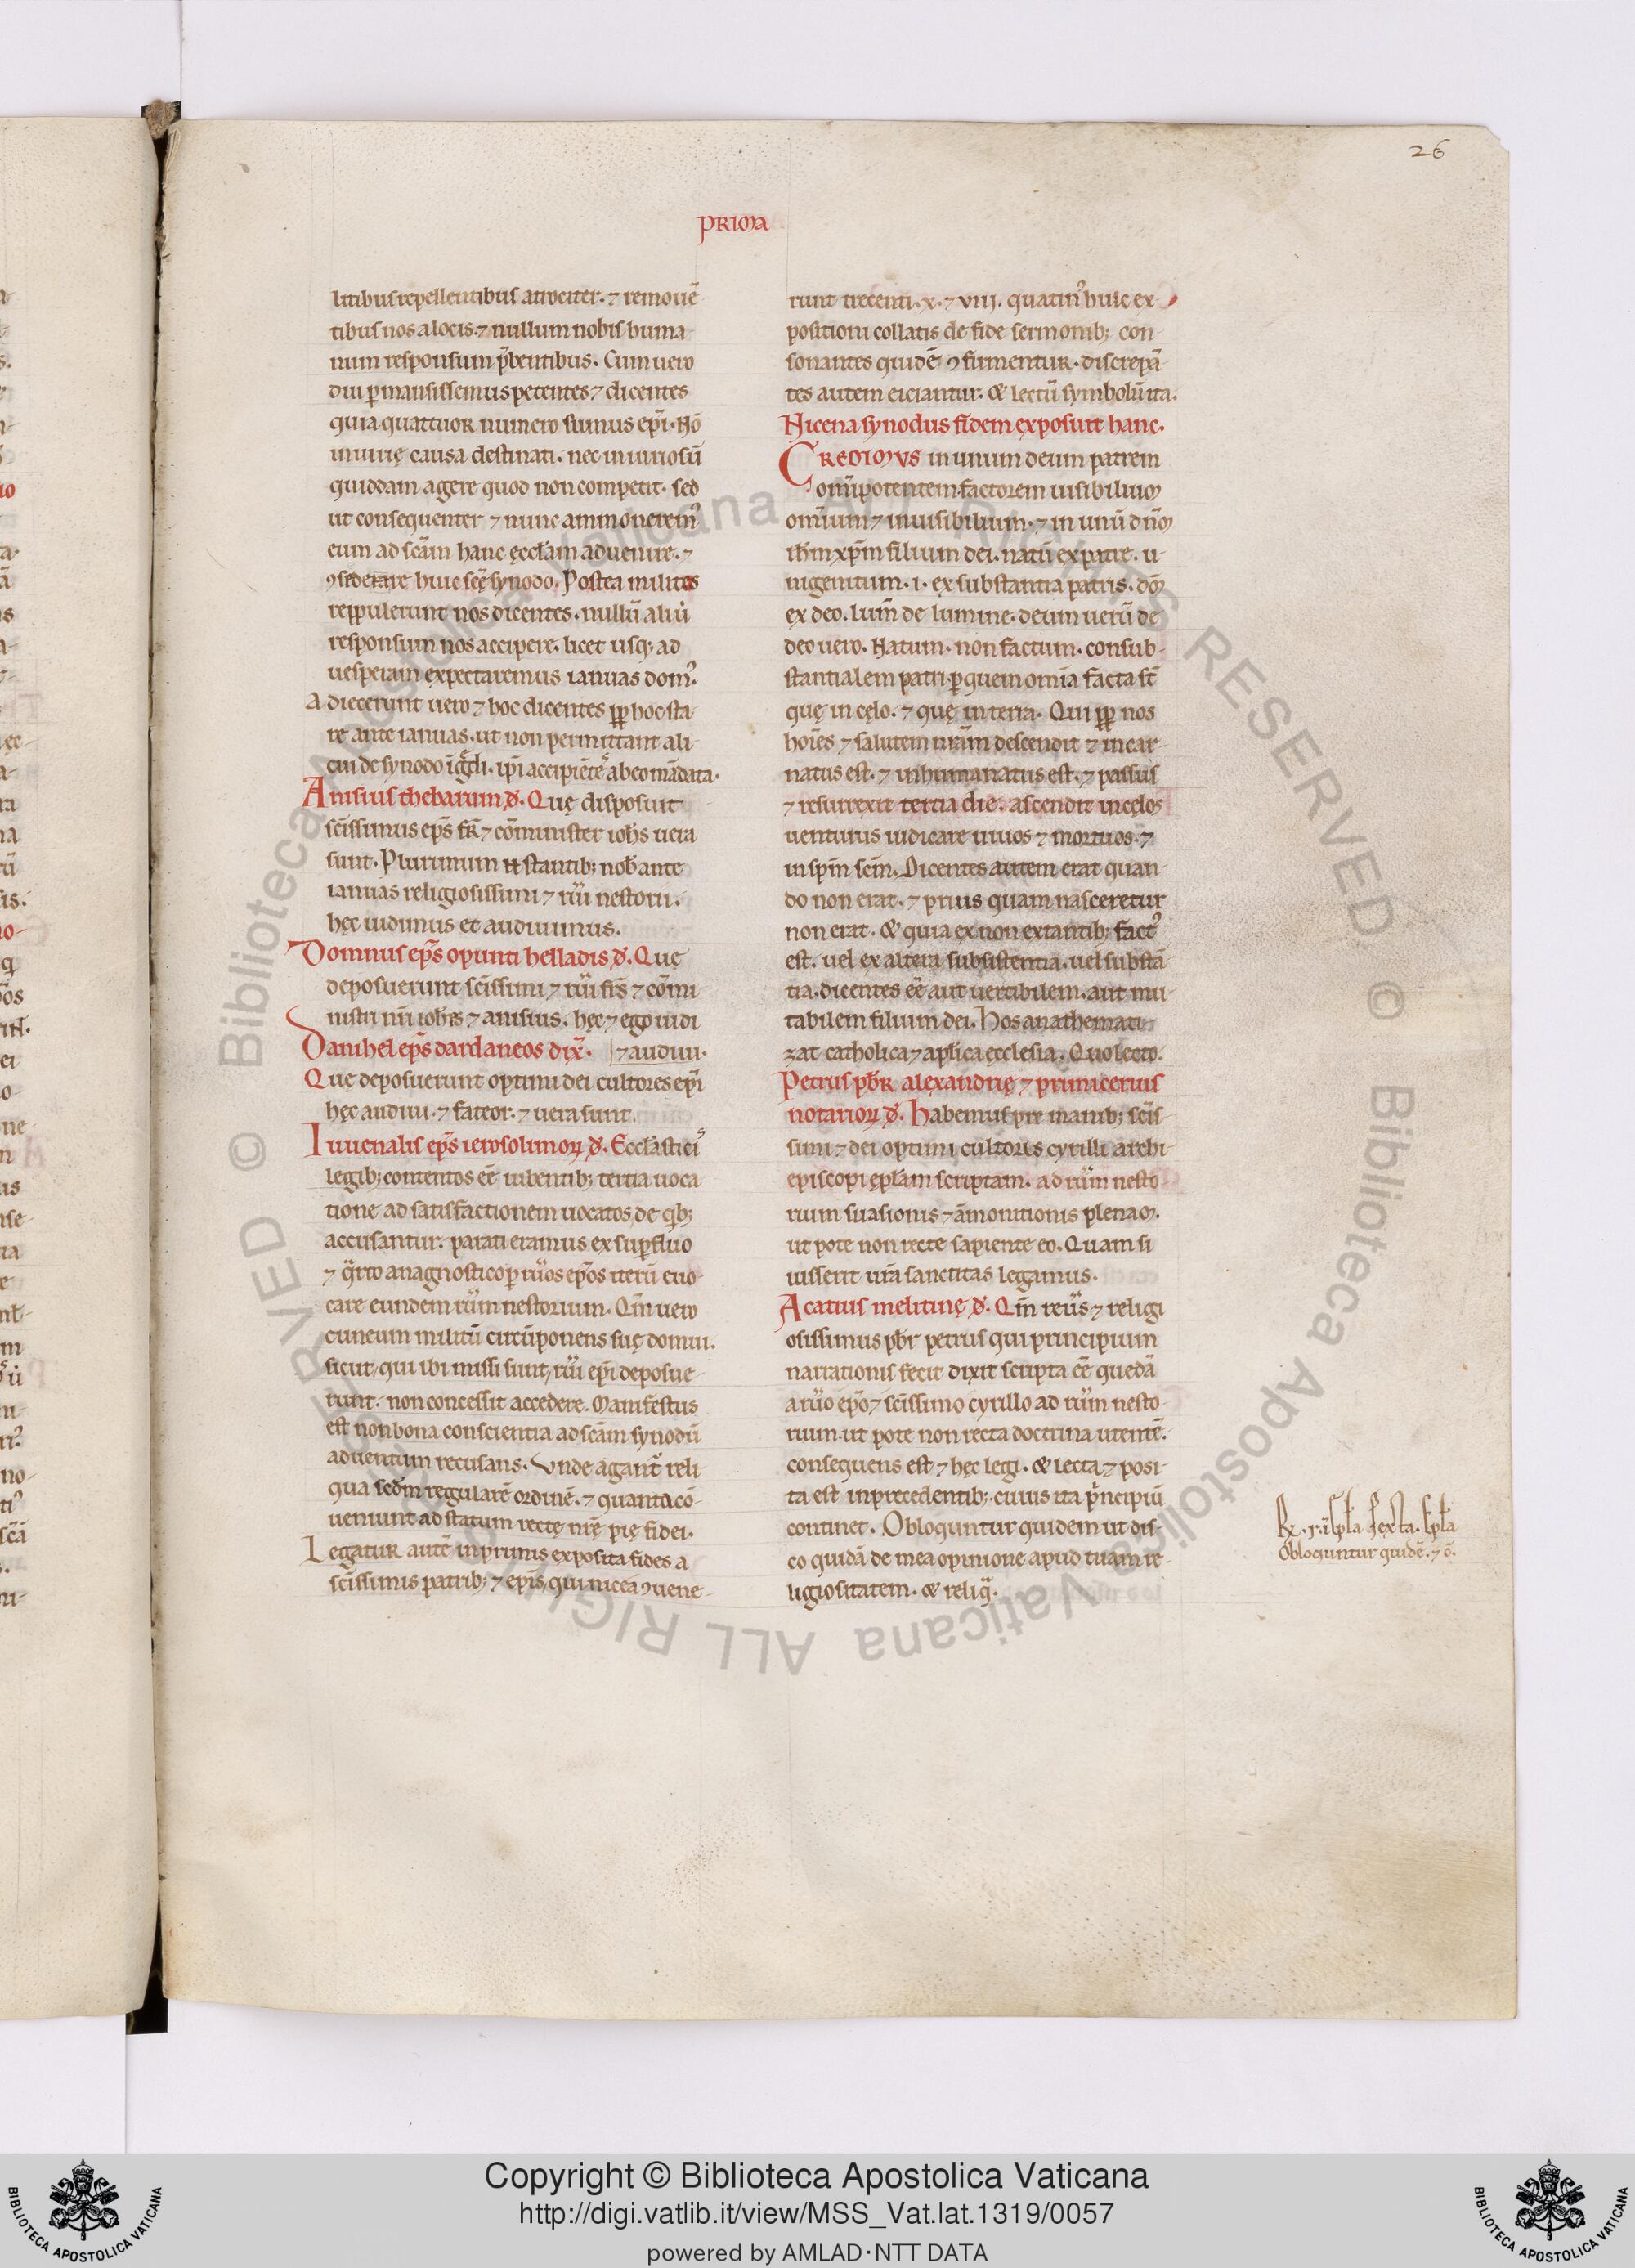 26
PRIMA
litibus repellentibus atrociter. ⁊ remouē-
tibus nos a locis. ⁊ nullum nobis huma-
num responsum p̄bentibus. Cum uero
diu p̱mansissemus petentes ⁊ dicentes
quia quattuor numero sumus ep̄i. Nō
iniurię causa destinati. nec iniuriosū
quiddam agere quod non competit. sed
ut consequenter ⁊ nunc ammoneremꝰ
eum ad sc̄am hanc ęccƚam aduenire. ⁊
ꝯsederare huic sc̄ę synodo. Postea milites
repp̱ulerunt nos dicentes. nullū aliud
responsum nos accipere. licet usq; ad
uesperam expectaremus ianuas domꝰ.
Adiecerunt uero ⁊ hoc dicentes p̱p̱ hoc sta-
re ante ianuas. ut non permittant ali-
cui de synodo
ip̄i accipiētes ab eo mādata.
Anisius thebarum đ. Quę disposuit
sc̄issimus ep̄s fr̄ ⁊ cōminister ioh̄s uera
sunt. Plurimum stantib; nob̄ ante
ianuas religiosissimi ⁊ rūi nestorii.
hęc uidimus et audiuimus.
Domnus ep̄s opunti helladis đ. Quę
deposuerunt sc̄issimi ⁊ rūi fr̄s ⁊ cōmi-
nistri nr̄i ioh̄es ⁊ anisius. hęc ⁊ ego uidi
Danihel ep̄s dardaneos dix̄. ⁊ audiui.
Quę deposuerunt optimi dei cultores ep̄i
hęc audiui. ⁊ fateor. ⁊ uera sunt.
Iuuenalis ep̄s ierosolimoꝝ đ. Eccƚasticis
legib; contentos eē iubentib; tertia uoca-
tione ad satisfactionem uocatos de qib;
accusantur. parati eramus ex sup̱fluo
⁊ q̄rto anagnostico p̱ rūos ep̄os iterū euo-
care eundem rūm nestorium. Qm̄ uero
cuneum militū circūponens suę domui.
sicut qui ibi missi sunt, rūi ep̄i deposue-
runt. non concessit accedere. Manifestus
est non bona conscientia ad sc̄am synodū
aduentum recusans. Unde agant̄ reli-
qua scđm regularē ordinē. ⁊ quanta cō-
ueniunt ad statum rectę nr̄ę pię fidei.
Legatur autē in primis exposita fides a
sc̄issimis patrib; ⁊ ep̄is, qui niceā ꝯuene-
runt trecenti. x. ⁊ viii. quatinꝰ huic ex-
positioni collatis de fide sermonib; con-
sonantes quidē ꝯfirmentur. discrepā-
tes autem eiciantur. & lectū symbolū ita.
Nicena synodus fidem exposuit hanc.
CREDIMUS in unum deum patrem
om̄ipotentem. factorem uisibilium
om̄ium ⁊ inuisibilium. ⁊ in unū dn̄m
ih̄m xp̄m filium dei. natū ex patre. u-
nigenitum. i. ex substantia patris. dm̄
ex deo. lum̄ de lumine. deum uerū de
deo uero. Natum. non factum. consub-
stantialem patri. p̱ quem om̄ia facta st̄
quę in cęlo. ⁊ quę in terra. Qui p̱p̱ nos
hoīes ⁊ salutem nr̄am descendit ⁊ incar-
natus est. ⁊ inhumanatus est. ⁊ passus
⁊ resurrexit tertia die. ascendit in cęlos
uenturus iudicare uiuos ⁊ mortuos. ⁊
in sp̄m sc̄m. Dicentes autem erat quan-
do non erat. ⁊ prius quam nasceretur
non erat. & quia ex non extantib; factꝰ
est. uel ex altera subsistentia. uel substā-
tia. dicentes eē aut uertibilem. aut mu-
tabilem filium dei. Hos anathemati-
zat catholica ⁊ aplica ęcclesia. Quo lecto.
Petrus pb̄r alexandrię ⁊ primicerius
notarioꝝ đ. Habemus pre manib; sc̄is-
simi ⁊ dei optimi cultoris cyrilli archi-
episcopi epƚam scriptam. ad rūm nesto-
rium suasionis ⁊ āmonitionis plenam.
ut pote non recte sapiente eo. Quam si
iusserit ur̄a sanctitas legamus.
Acatius melitinę đ. Qm̄ reūs ⁊ religi-
osissimus pb̄r petrus qui principium
narrationis fecit dixit scripta eē quedā
a rūo ep̄o ⁊ sc̄issimo cyrillo ad rūm nesto-
rium. ut pote non recta doctrina utentē.
consequens est ⁊ hęc legi. & lecta ⁊ posi-
ta est in precedentib;. cuius ita p̄ncipiū
continet. Obloquntur quidem ut dis-
co quidā de mea opinione apud tuam re-
ligiositatem. & reliq̄.
sexta. epƚa
Obloquntur quidē. ⁊ c̄.
Copyright © Biblioteca Apostolica Vaticana
http://digi.vatlib.it/view/MSS_Vat.lat.1319/0057
powered by AMLAD·NTT DATA
BIBLIOTECA APOSTOLICA VATICANA
BIBLIOTECA APOSTOLICA VATICANA
© Biblioteca Apostolica Vaticana ALL RIGHTS RESERVED © Biblioteca Apostolica Vaticana ALL RIGHTS RESERVED